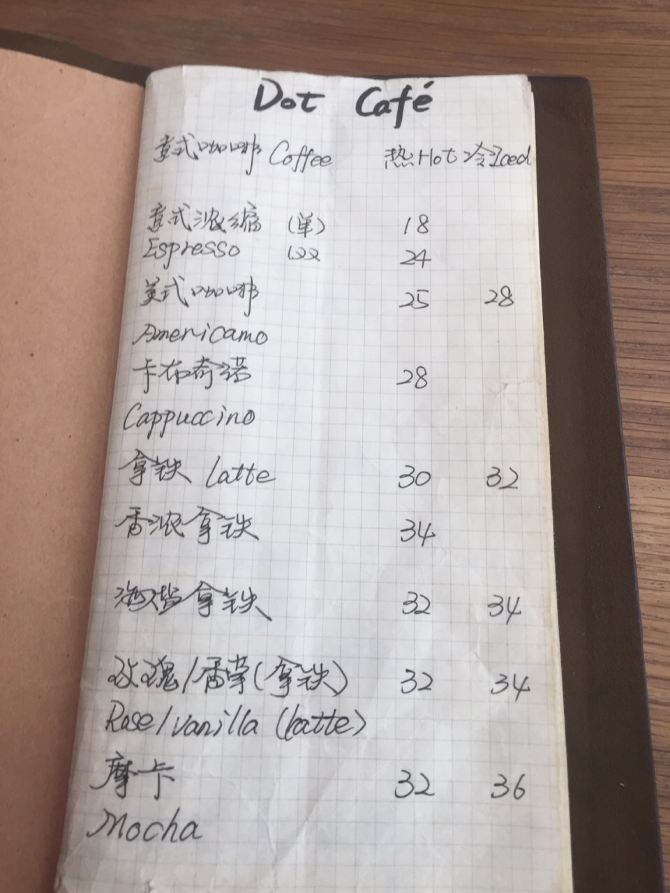 Dot Café
意式咖啡 Coffee 热Hot 冷Iced
意式浓缩 (单) 18
Espresso 24
美式咖啡 25 28
Americamo
卡布奇诺 28
Cappuccino
拿铁 Latte 30 32
香浓拿铁 34
海盐拿铁 32 34
玫瑰/香草(拿铁) 32 34
Rose/vanilla (latte)
摩卡 32 36
Mocha